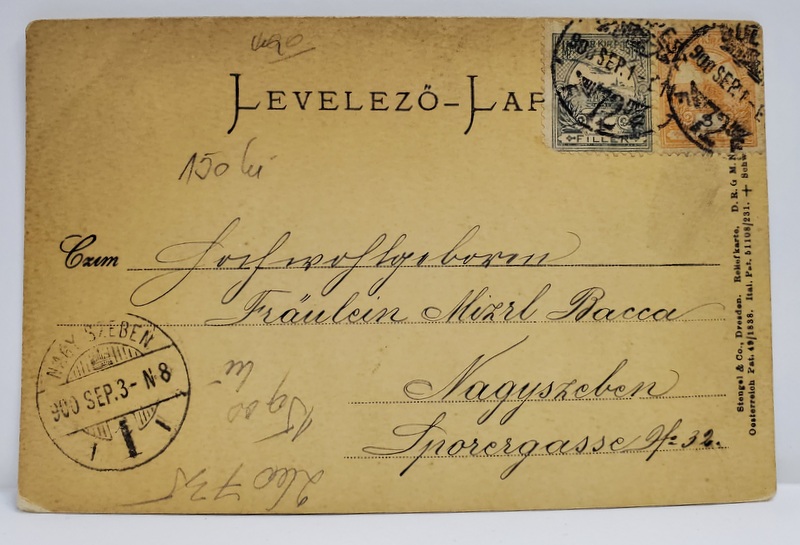 LEVELEZŐ-LAP
FILLER
150 lei
Czim Hochwohlgeboren
Fräulein Mizzl Bacca
Nagyszeben
Sporergasse No 32.
NAGY SZEBEN
900 SEP. 3 - N 8
1
900 SEP. 1
900 SEP. 1 - E
72
72
Stengel & Co., Dresden. Reliefkarte. D. R. G. M.
Oesterreich Pat. 49/1838. Ital. Pat. 51108/231. + Schw